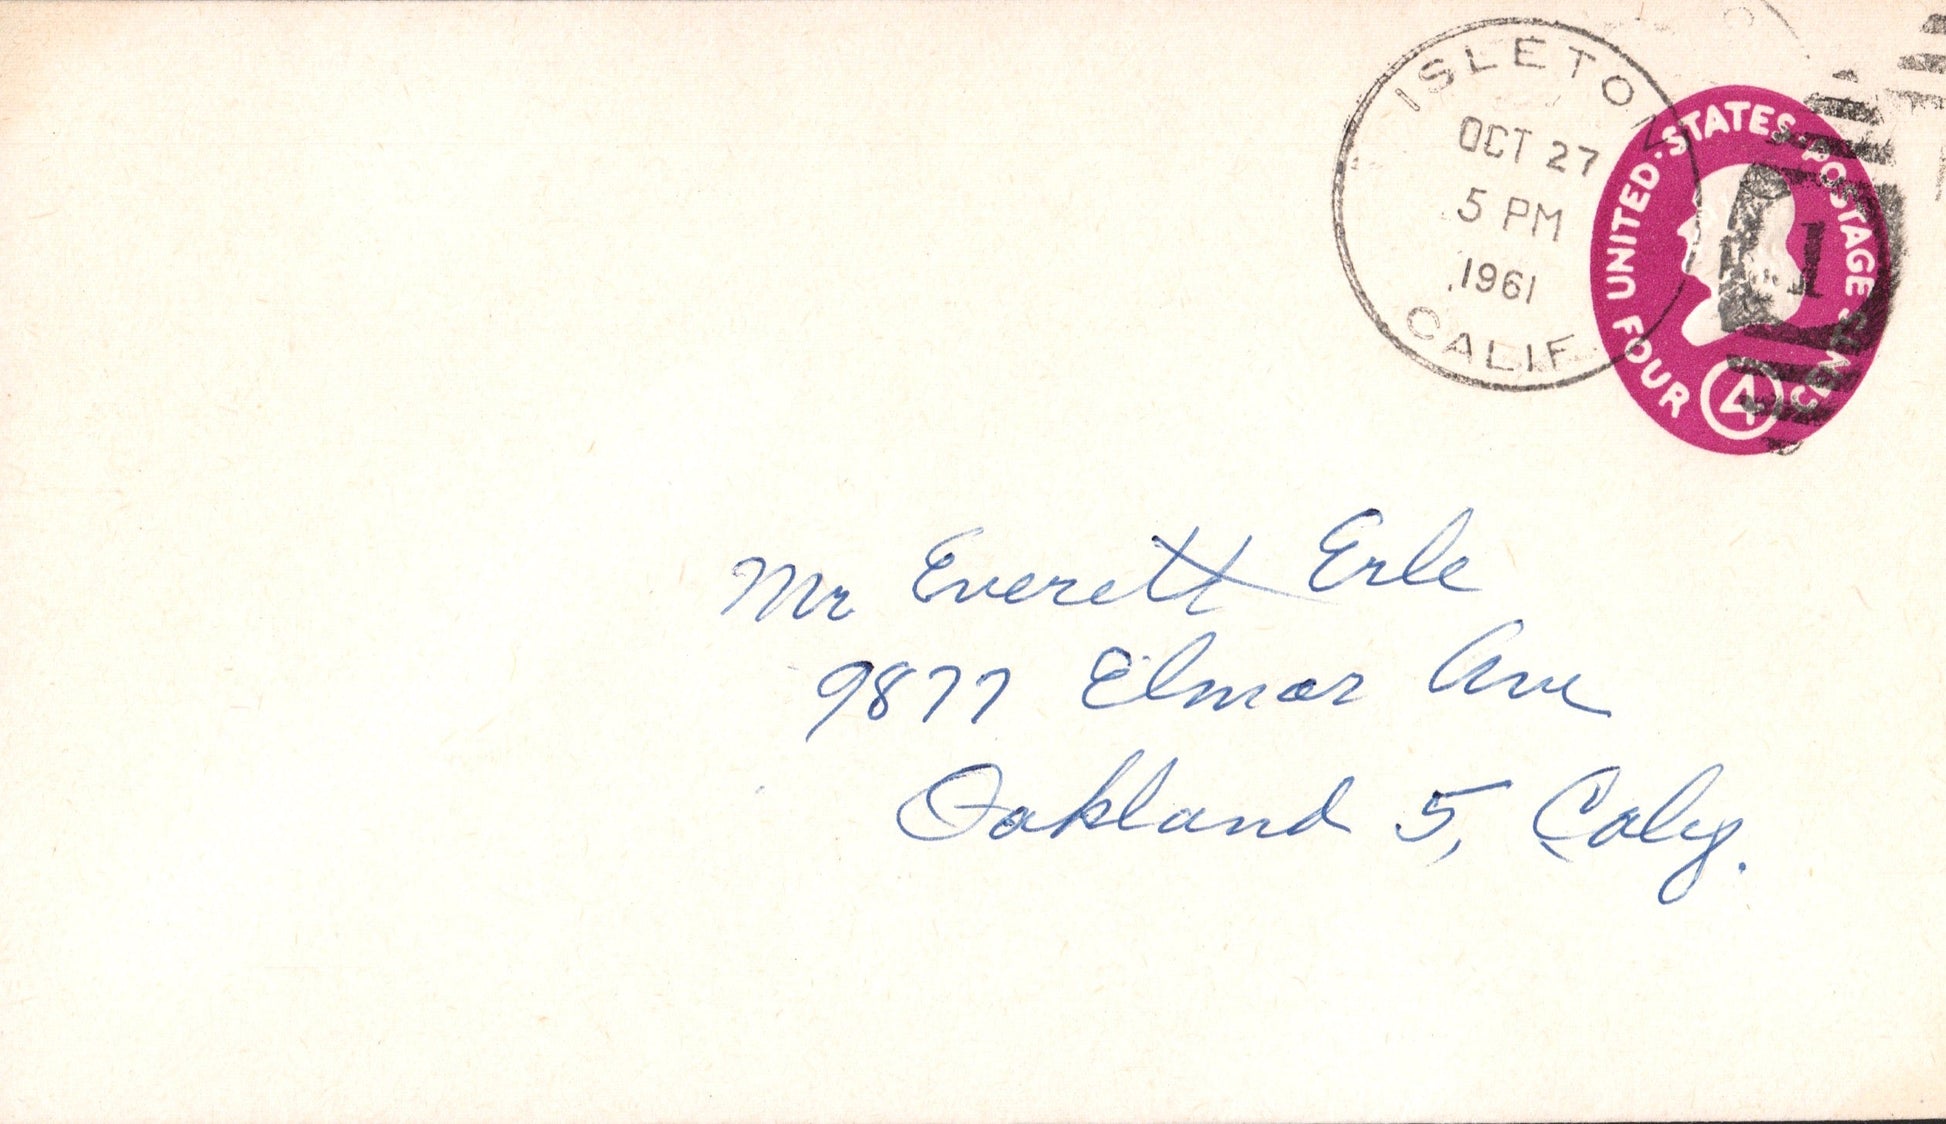 ISLETON
OCT 27
5 PM
1961
CALIF
UNITED · STATES · POSTAGE
FOUR 4 CENTS
1
Mr Everett Erle
9877 Elmar Ave
Oakland 5, Calif.